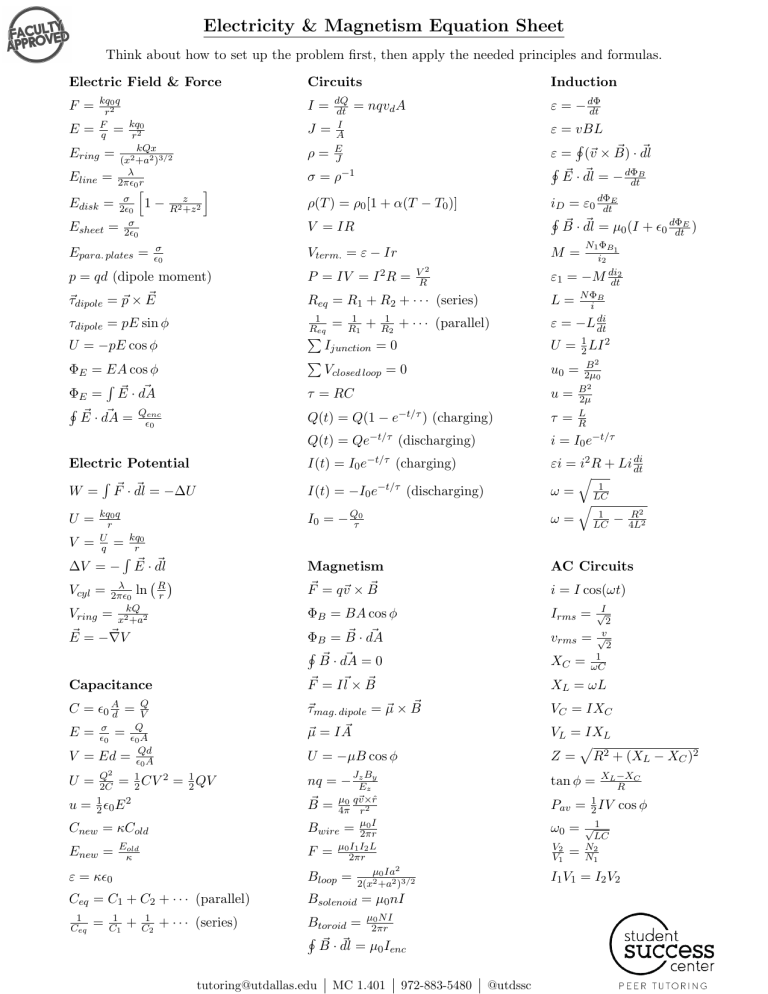 FACULTY
APPROVED
Electricity & Magnetism Equation Sheet
Think about how to set up the problem first, then apply the needed principles and formulas.
Electric Field & Force
F = \frac{kq_0q}{r^2}
E = \frac{F}{q} = \frac{kq_0}{r^2}
E_{ring} = \frac{kQx}{(x^2+a^2)^{3/2}}
E_{line} = \frac{λ}{2πϵ_0r}
E_{disk} = \frac{σ}{2ϵ_0} [1 − \frac{z}{R^2+z^2}]
E_{sheet} = \frac{σ}{2ϵ_0}
E_{para. plates} = \frac{σ}{ϵ_0}
p = qd (dipole moment)
\vec{τ}_{dipole} = \vec{p} × \vec{E}
τ_{dipole} = pE sin ϕ
U = −pE cos ϕ
Φ_E = EA cos ϕ
Φ_E = ∫ \vec{E} · \vec{dA}
∮ \vec{E} · \vec{dA} = \frac{Q_{enc}}{ϵ_0}
Electric Potential
W = ∫ \vec{F} · \vec{dl} = −ΔU
U = \frac{kq_0q}{r}
V = \frac{U}{q} = \frac{kq_0}{r}
ΔV = − ∫ \vec{E} · \vec{dl}
V_{cyl} = \frac{λ}{2πϵ_0} ln (\frac{R}{r})
V_{ring} = \frac{kQ}{x^2+a^2}
\vec{E} = −\vec{∇}V
Capacitance
C = ϵ_0 \frac{A}{d} = \frac{Q}{V}
E = \frac{σ}{ϵ_0} = \frac{Q}{ϵ_0A}
V = Ed = \frac{Qd}{ϵ_0A}
U = \frac{Q^2}{2C} = \frac{1}{2}CV^2 = \frac{1}{2}QV
u = \frac{1}{2}ϵ_0E^2
C_{new} = κC_{old}
E_{new} = \frac{E_{old}}{κ}
ε = κϵ_0
C_{eq} = C_1 + C_2 + ··· (parallel)
\frac{1}{C_{eq}} = \frac{1}{C_1} + \frac{1}{C_2} + ··· (series)
Circuits
I = \frac{dQ}{dt} = nqv_dA
J = \frac{I}{A}
ρ = \frac{E}{J}
σ = ρ^{−1}
ρ(T) = ρ_0[1 + α(T − T_0)]
V = IR
V_{term.} = ε − Ir
P = IV = I^2R = \frac{V^2}{R}
R_{eq} = R_1 + R_2 + ··· (series)
\frac{1}{R_{eq}} = \frac{1}{R_1} + \frac{1}{R_2} + ··· (parallel)
∑ I_{junction} = 0
∑ V_{closed loop} = 0
τ = RC
Q(t) = Q(1 − e^{−t/τ}) (charging)
Q(t) = Qe^{−t/τ} (discharging)
I(t) = I_0e^{−t/τ} (charging)
I(t) = −I_0e^{−t/τ} (discharging)
I_0 = −\frac{Q_0}{τ}
Magnetism
\vec{F} = q\vec{v} × \vec{B}
Φ_B = BA cos ϕ
Φ_B = \vec{B} · \vec{dA}
∮ \vec{B} · \vec{dA} = 0
\vec{F} = I\vec{l} × \vec{B}
\vec{τ}_{mag. dipole} = \vec{μ} × \vec{B}
\vec{μ} = I\vec{A}
U = −μB cos ϕ
nq = −\frac{J_zB_y}{E_z}
\vec{B} = \frac{μ_0}{4π} \frac{q\vec{v}×\hat{r}}{r^2}
B_{wire} = \frac{μ_0I}{2πr}
F = \frac{μ_0I_1I_2L}{2πr}
B_{loop} = \frac{μ_0Ia^2}{2(x^2+a^2)^{3/2}}
B_{solenoid} = μ_0nI
B_{toroid} = \frac{μ_0NI}{2πr}
∮ \vec{B} · \vec{dl} = μ_0I_{enc}
Induction
ε = −\frac{dΦ}{dt}
ε = vBL
ε = ∮(\vec{v} × \vec{B}) · \vec{dl}
∮ \vec{E} · \vec{dl} = −\frac{dΦ_B}{dt}
i_D = ε_0\frac{dΦ_E}{dt}
∮ \vec{B} · \vec{dl} = μ_0(I + ϵ_0\frac{dΦ_E}{dt})
M = \frac{N_1Φ_{B_1}}{i_2}
ε_1 = −M\frac{di_2}{dt}
L = \frac{NΦ_B}{i}
ε = −L\frac{di}{dt}
U = \frac{1}{2}LI^2
u_0 = \frac{B^2}{2μ_0}
u = \frac{B^2}{2μ}
τ = \frac{L}{R}
i = I_0e^{−t/τ}
εi = i^2R + Li\frac{di}{dt}
ω = \sqrt{\frac{1}{LC}}
ω = \sqrt{\frac{1}{LC} − \frac{R^2}{4L^2}}
AC Circuits
i = I cos(ωt)
I_{rms} = \frac{I}{\sqrt{2}}
v_{rms} = \frac{v}{\sqrt{2}}
X_C = \frac{1}{ωC}
X_L = ωL
V_C = IX_C
V_L = IX_L
Z = \sqrt{R^2 + (X_L − X_C)^2}
tan ϕ = \frac{X_L−X_C}{R}
P_{av} = \frac{1}{2}IV cos ϕ
ω_0 = \frac{1}{\sqrt{LC}}
\frac{V_2}{V_1} = \frac{N_2}{N_1}
I_1V_1 = I_2V_2
student
success
center
PEER TUTORING
tutoring@utdallas.edu | MC 1.401 | 972-883-5480 | @utdssc